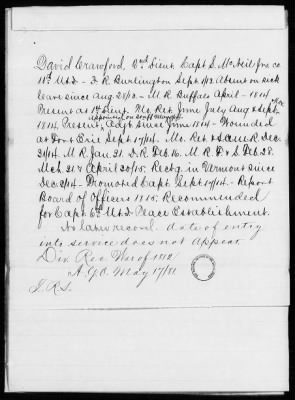 David Crawford, 2nd Lieut. Capt. S. McNeil Jrs. co.
11th U.S.I - D.R. Burlington Sept. 1/12. Absent on sick
leave since Aug. 28/12. - M.R. Buffalo April - 1814
Present as 1st Lieut. Mo. Ret. June July Aug & Sept.
appointed on staff
1814, Present, Adjt. since June 1814 - Wounded
at Fort Erie Sept. 17/14. Mo. Ret. Dec.
31/14. M.R. Jan. 31. D.R. Feb. 16. M.R. Feb. 28.
Mch. 31 & April 30/15. Rectg. in Vermont since
Dec. 2/14 - Promoted Capt. Sept. 17/14 - Report
Board of Officers 1815; Recommended
for Capt. 6th U.S.I. Peace Establishment.
No later record - date of entry
into service does not appear
Div. Rec. War of 1812
A.G.O. May 17/81
J.R.S.